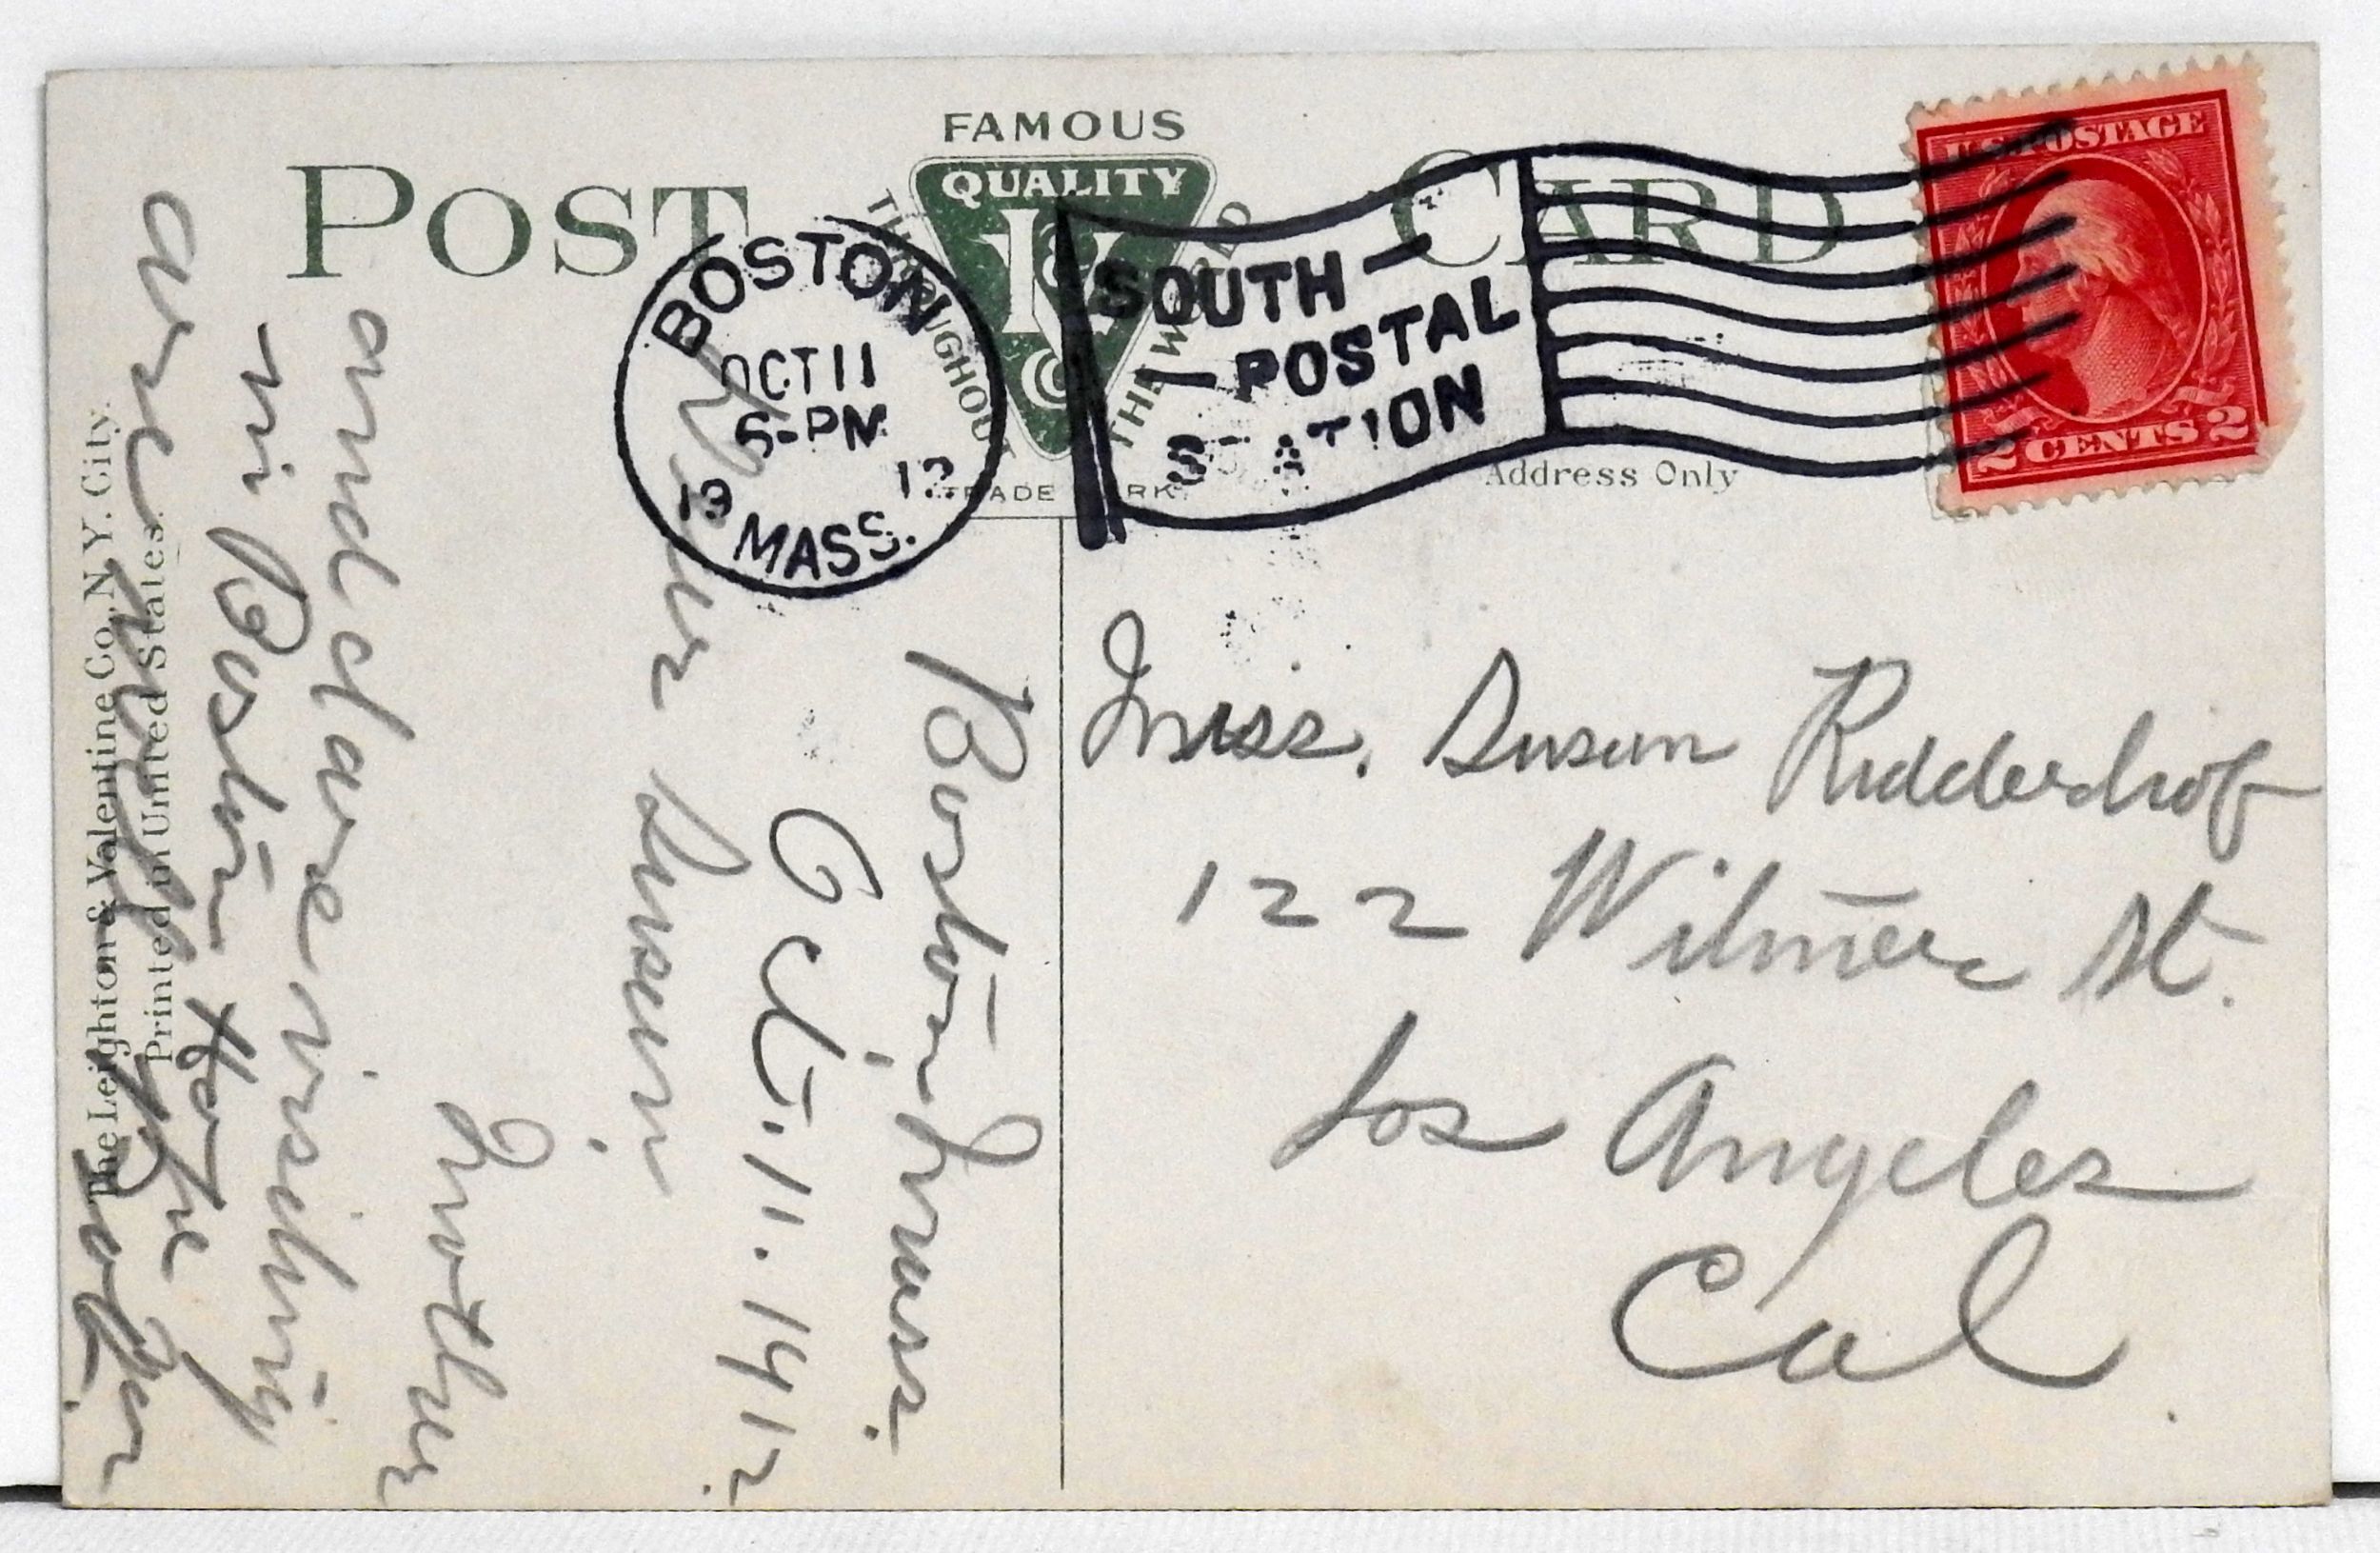 FAMOUS
QUALITY
POST CARD
THROUGHOUT THE WORLD
TRADE MARK
BOSTON
OCT 11
6-PM
19 12
MASS.
SOUTH
POSTAL
STATION
U.S. POSTAGE
2 CENTS 2
Address Only
Boston Mass.
Oct. 11. 1912.
Dear Susan
Mother
and I are visiting
in Boston Hope
are
The Leighton & Valentine Co., N.Y. City.
Printed in United States.
Miss. Susan Ridderhof
122 Wilmer St.
Los Angeles
Cal